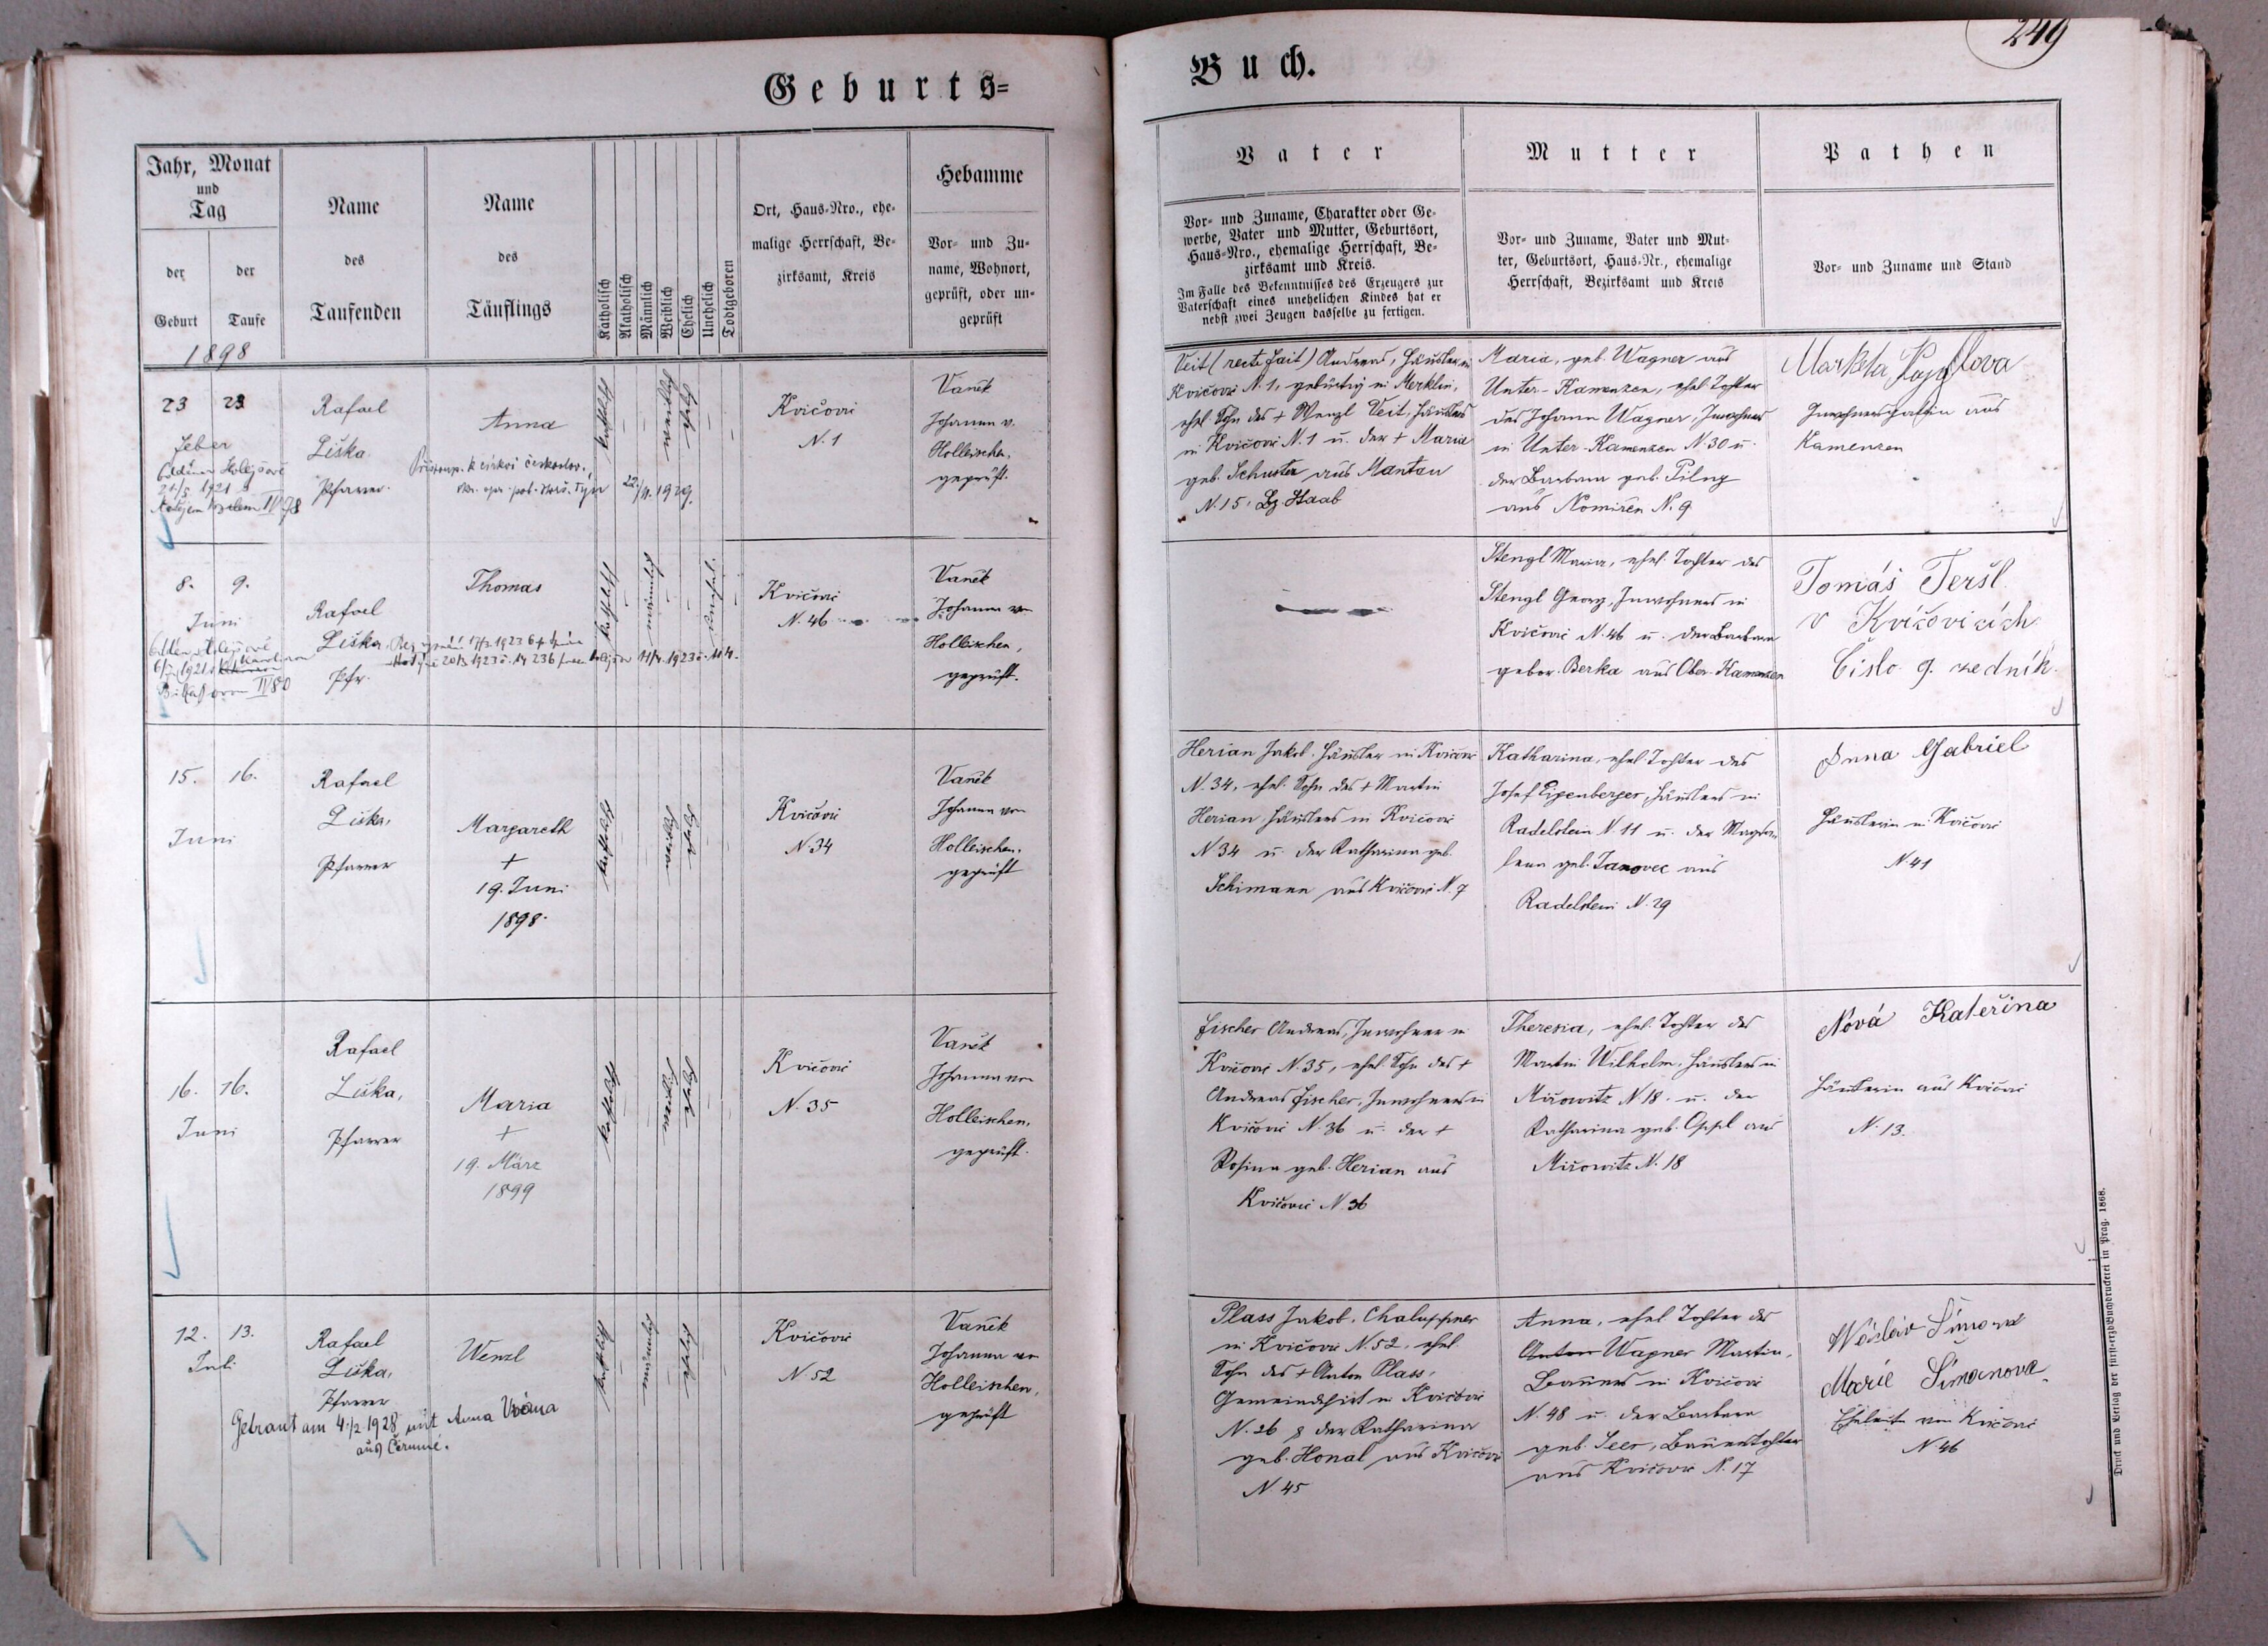 Geburts=
Jahr, Monat
und
Tag
der
Geburt
der
Taufe
Name
des
Taufenden
Name
des
Täuflings
Katholisch
Akatholisch
Männlich
Weiblich
Ehelich
Unehelich
Todtgeboren
Ort, Haus-Nro., ehe-
malige Herrschaft, Be-
zirksamt, Kreis
Hebamme
Vor- und Zu-
name, Wohnort,
geprüft, oder un-
geprüft
1898
23 23
Feber
21./5. 1921 s
Rafael
Liška
Pfarrer.
Anna
Přistoup. k církvi českoslov.,
22./11. 1929.
katholisch
weiblich
ehelich
Kvičovic
N. 1
Vaněk
Johanna v.
Holleischen,
geprüft.
8. 9.
Juni
Rafael
Liška,
Pfr.
Thomas
katholisch
männlich
unehel.
Kvičovic
N. 46
Vaněk
Johanna von
Holleischen,
geprüft.
15. 16.
Juni
Rafael
Liška,
Pfarrer
Margareth
+
19. Juni
1898.
katholisch
weiblich
ehelich
Kvičovic
N. 34
Vaněk
Johanna von
Holleischen,
geprüft
16. 16.
Juni
Rafael
Liška,
Pfarrer
Maria
+
19. März
1899
katholisch
weiblich
ehelich
Kvičovic
N. 35
Vaněk
Johanna von
Holleischen,
geprüft.
12. 13.
Juli
Rafael
Liška,
Pfarrer
Wenzl
Getraut am 4./2 1928 mit Anna
aus
katholisch
männlich
ehelich
Kvičovic
N. 52
Vaněk
Johanna von
Holleischen,
geprüft
Buch.
249
Vater
Vor- und Zuname, Charakter oder Ge-
werbe, Vater und Mutter, Geburtsort,
Haus-Nro., ehemalige Herrschaft, Be-
zirksamt und Kreis.
Im Falle des Bekenntnisses des Erzeugers zur
Vaterschaft eines unehelichen Kindes hat er
nebst zwei Zeugen dasselbe zu fertigen.
Mutter
Vor- und Zuname, Vater und Mut-
ter, Geburtsort, Haus-Nr., ehemalige
Herrschaft, Bezirksamt und Kreis
Pathen
Vor- und Zuname und Stand
Veit (recte Fait) Andreas, Häusler in
Kvičovic N. 1, gebürtig in Merklin,
ehel. Sohn des + Wenzl Veit, Häuslers
in Kvičovic N. 1 u. der + Maria
geb. Schuster aus Mantau
N. 15, Bz. Staab
Maria, geb. Wagner aus
Unter-Kamenzen, ehel. Tochter
des Johann Wagner, Inwohners
in Unter-Kamenzen N. 30 u.
der Barbara geb. Pilny
aus N. 9
Marketa
Inwohnersgattin aus
Kamenzen
Stengl Maria, ehel. Tochter des
Stengl Georg, Inwohners in
Kvičovic N. 46 u. der Barbara
gebor. Berka aus Ober-Kamenzen
Tomáš Teršl
v Kvíčovicích
Číslo 9. zedník.
Herian Jakob, Häusler in Kvičovic
N. 34, ehel. Sohn des + Martin
Herian, Häuslers in Kvičovic
N. 34 u. der Katharina geb.
Schimann aus Kvičovic N. 7
Katharina, ehel. Tochter des
Josef Eigenberger, Häuslers in
Radelstein N. 11 u. der Magda-
lena geb. Janovec aus
Radelstein N. 29
Anna Gabriel
Häuslerin in Kvičovic
N. 41
Fischer Andreas, Inwohner in
Kvičovic N. 35, ehel. Sohn des +
Andreas Fischer, Inwohners in
Kvičovic N. 36 u. der +
Rosina geb. Herian aus
Kvičovic N. 36
Theresia, ehel. Tochter des
Martin Wilhelm, Häuslers in
Mirowitz N. 18. u. der
Katharina geb. Oppl aus
Mirowitz N. 18
Nová Kateřina
Häuslerin aus Kvičovic
N. 13.
Plass Jakob, Chaluppner
in Kvičovic N. 52, ehel.
Sohn des + Anton Plass,
Gemeindehirt in Kvičovic
N. 26 & der Katharina
geb. Honal aus Kvičovic
N. 45
Anna, ehel. Tochter des
Anton Wagner Martin,
Bauers in Kvičovic
N. 48 u. der Barbara
geb. Seer, Bauerstochter
aus Kvičovic N. 17
Václav Šimana
Marie Šimanova
Eheleute von Kvičovic
N. 46
Druck und Verlag der fürsterzb. Buchdruckerei in Prag. 1868.